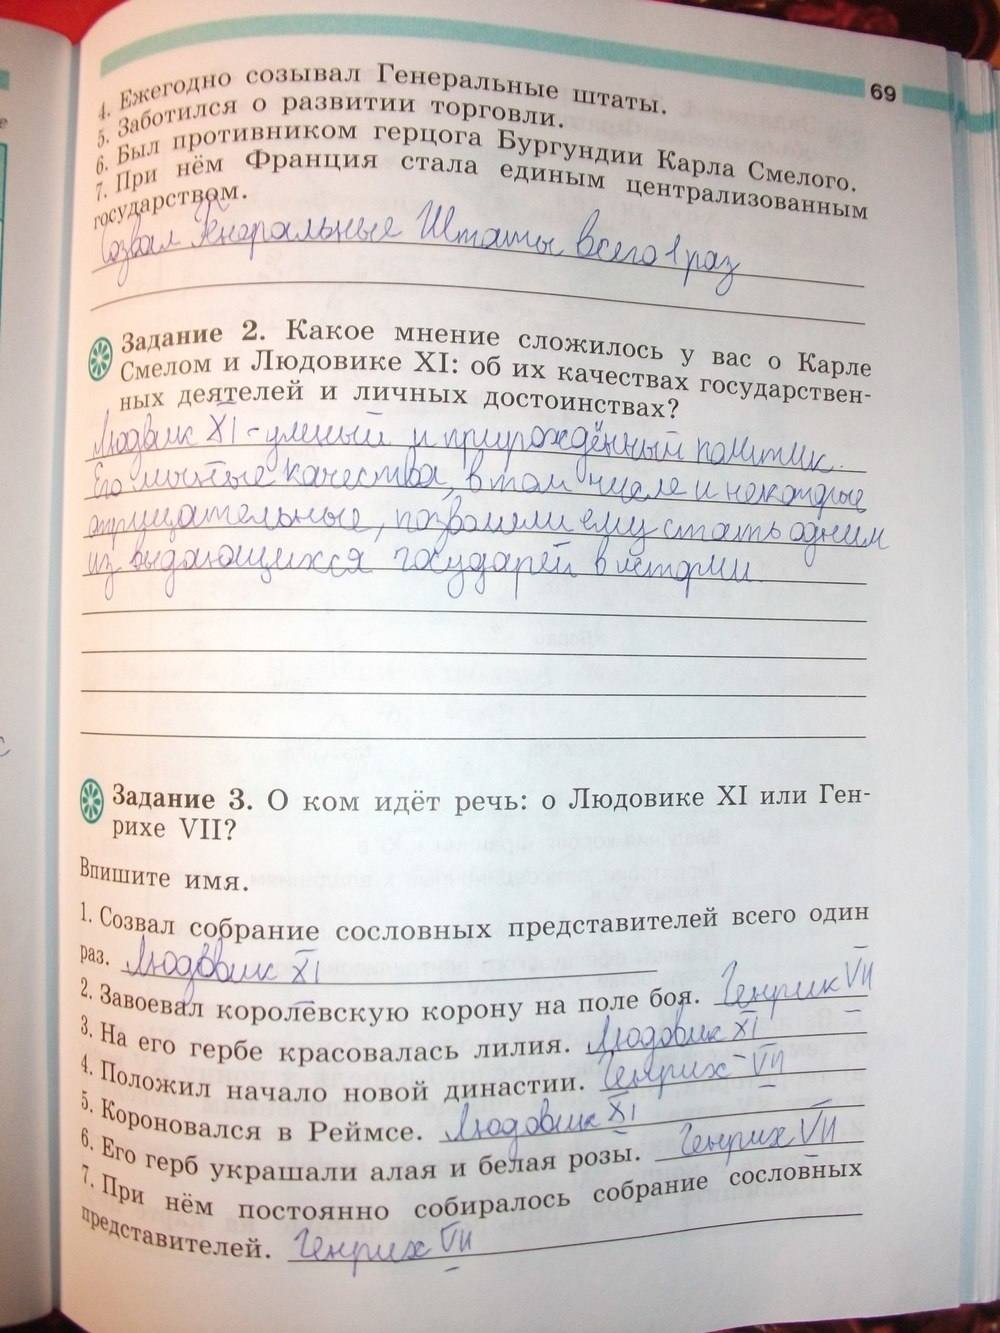 69
4. Ежегодно созывал Генеральные штаты.
5. Заботился о развитии торговли.
6. Был противником герцога Бургундии Карла Смелого.
7. При нём Франция стала единым централизованным
государством.
Созвал Генеральные Штаты всего 1 раз
Задание 2. Какое мнение сложилось у вас о Карле
Смелом и Людовике XI: об их качествах государствен-
ных деятелей и личных достоинствах?
Людвик XI - умный и прирождённый политик.
Его личные качества, в том числе и некоторые
отрицательные, позволили ему стать одним
из выдающихся государей в истории.
Задание 3. О ком идёт речь: о Людовике XI или Ген-
рихе VII?
Впишите имя.
1. Созвал собрание сословных представителей всего один
раз. Людовик XI
2. Завоевал королевскую корону на поле боя. Генрик VII
3. На его гербе красовалась лилия. Людовик XI
4. Положил начало новой династии. Генрих VII
5. Короновался в Реймсе. Людовик XI
6. Его герб украшали алая и белая розы. Генрих VII
7. При нём постоянно собиралось собрание сословных
представителей. Генрих VII